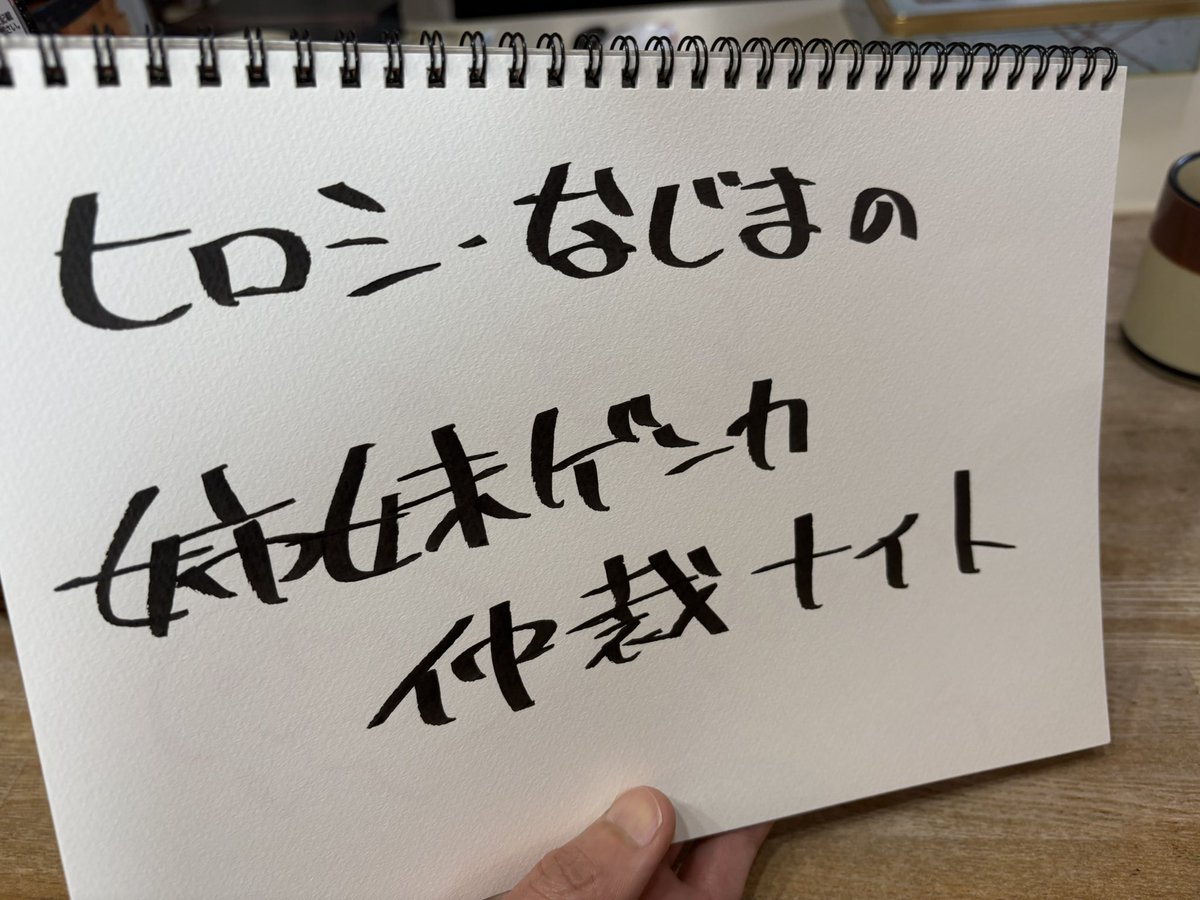 ヒロシ・なじまの
姉妹ゲンカ
仲裁ナイト